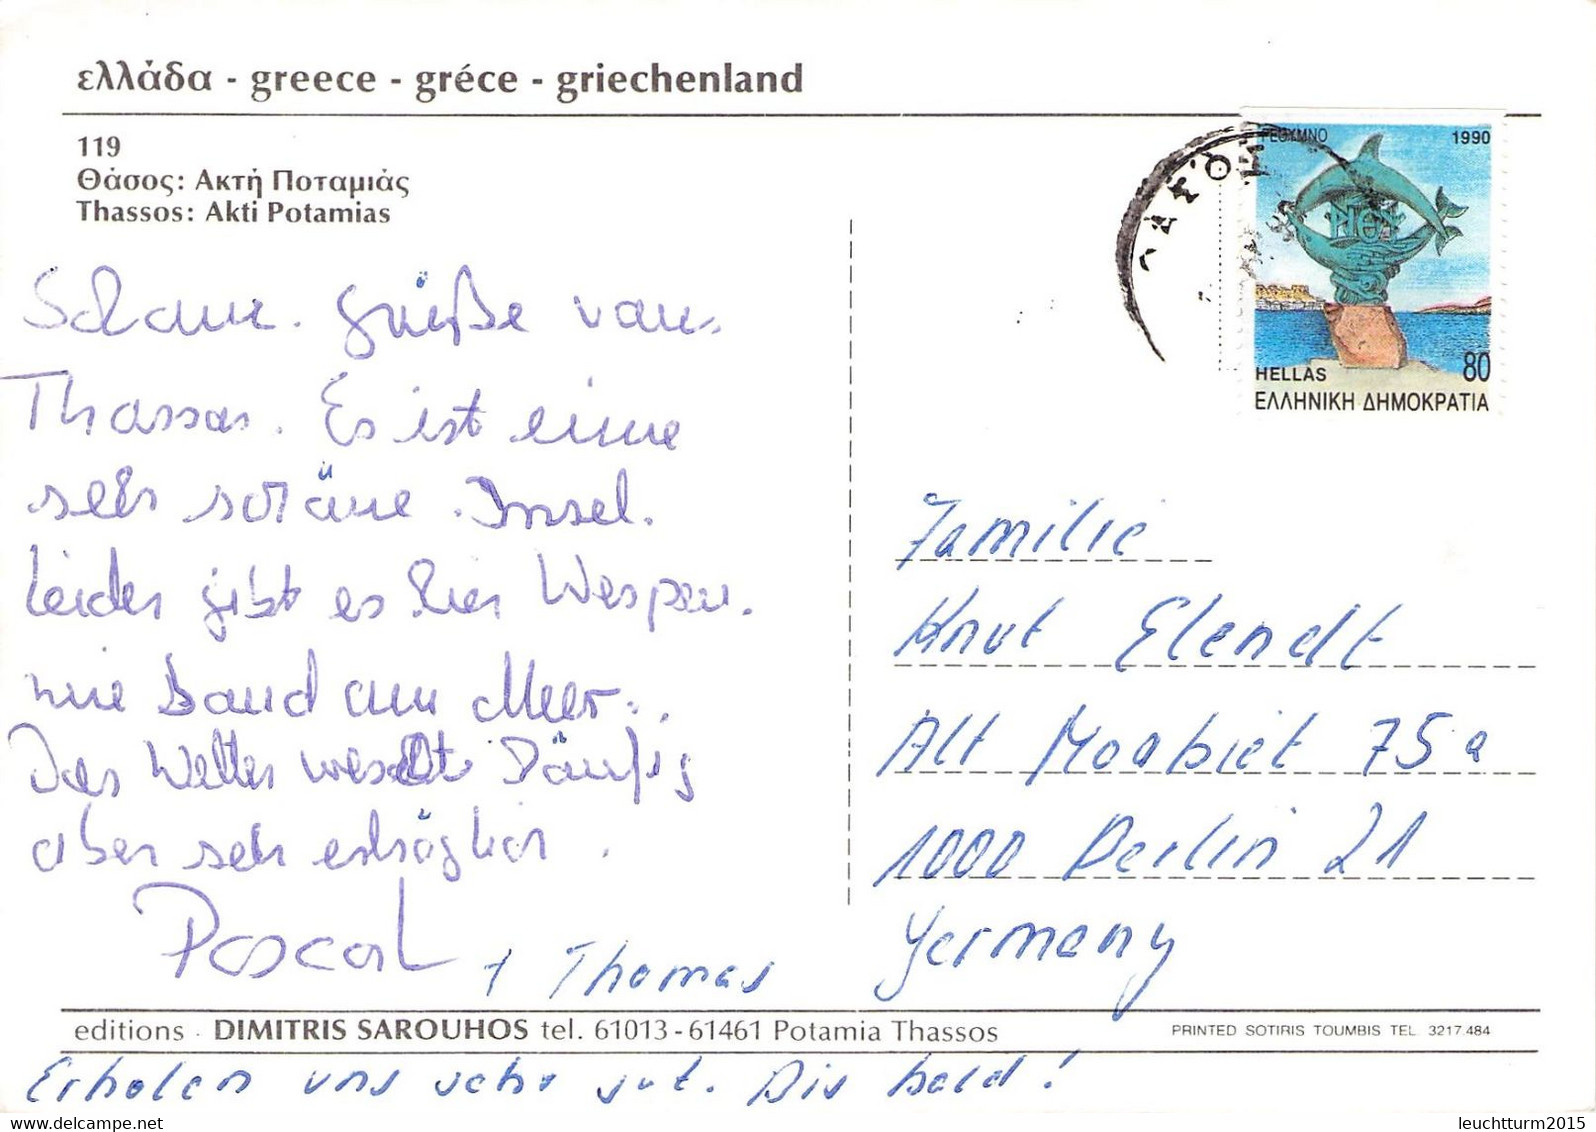 ελλάδα - greece - gréce - griechenland
119
Θάσος: Ακτή Ποταμιάς
Thassos: Akti Potamias
ΡΕΘΥΜΝΟ 1990
HELLAS 80
ΕΛΛΗΝΙΚΗ ΔΗΜΟΚΡΑΤΙΑ
Schöne. Grüße von
Thassos. Es ist eine
sehr schöne Insel.
Leider gibt es hier Wespen.
wie Sand am Meer..
Das Wetter wechselt häufig
aber sehr erträglich.
Pascal
+ Thomas
Familie
Knut Elendt
Alt Moabiet 75a
1000 Berlin 21
Germany
editions · DIMITRIS SAROUHOS tel. 61013-61461 Potamia Thassos
PRINTED SOTIRIS TOUMBIS TEL. 3217.484
Erholen uns sehr gut. Bis bald!
leuchtturm2015